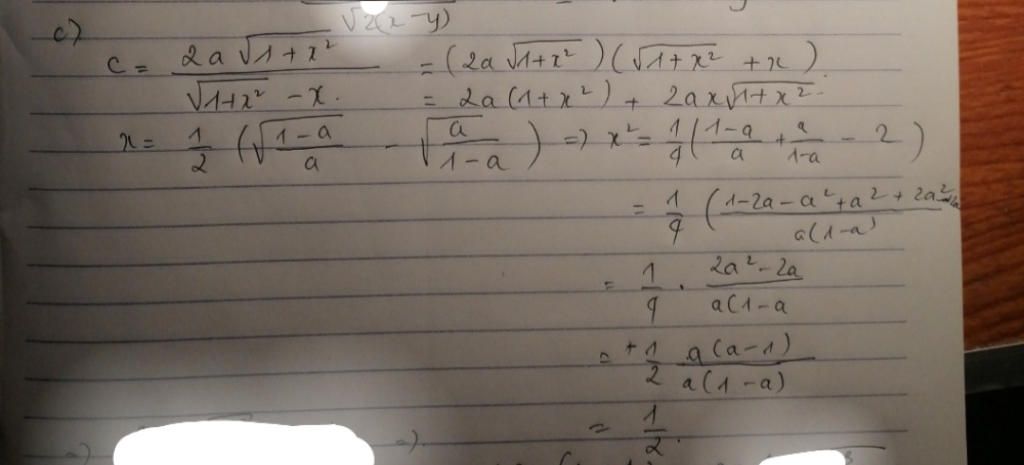 √2(x-y)
c)
C = 2a√1+x² / √1+x² - x. = (2a√1+x²)(√1+x² + x).
= 2a(1+x²) + 2ax√1+x².
x = 1/2 (√1-a/a - √a/1-a) => x² = 1/4 (1-a/a + a/1-a - 2)
= 1/4 (1-2a-a²+a²+2a² / a(1-a)
= 1/4 . 2a²-2a / a(1-a
= +1/2 a(a-1) / a(1-a)
= 1/2.